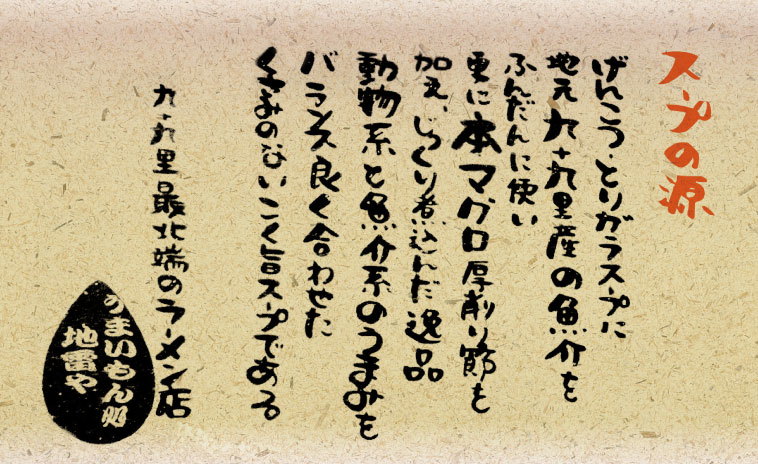 スープの源
げんこつ・とりガラスープに
地元九十九里産の魚介を
ふんだんに使い
更に本マグロ厚削り節を
加え、じっくり煮込んだ逸品
動物系と魚介系のうまみを
バランス良く合わせた
くさみのないこく旨スープである
九十九里最北端のラーメン店
うまいもん処
地雷や